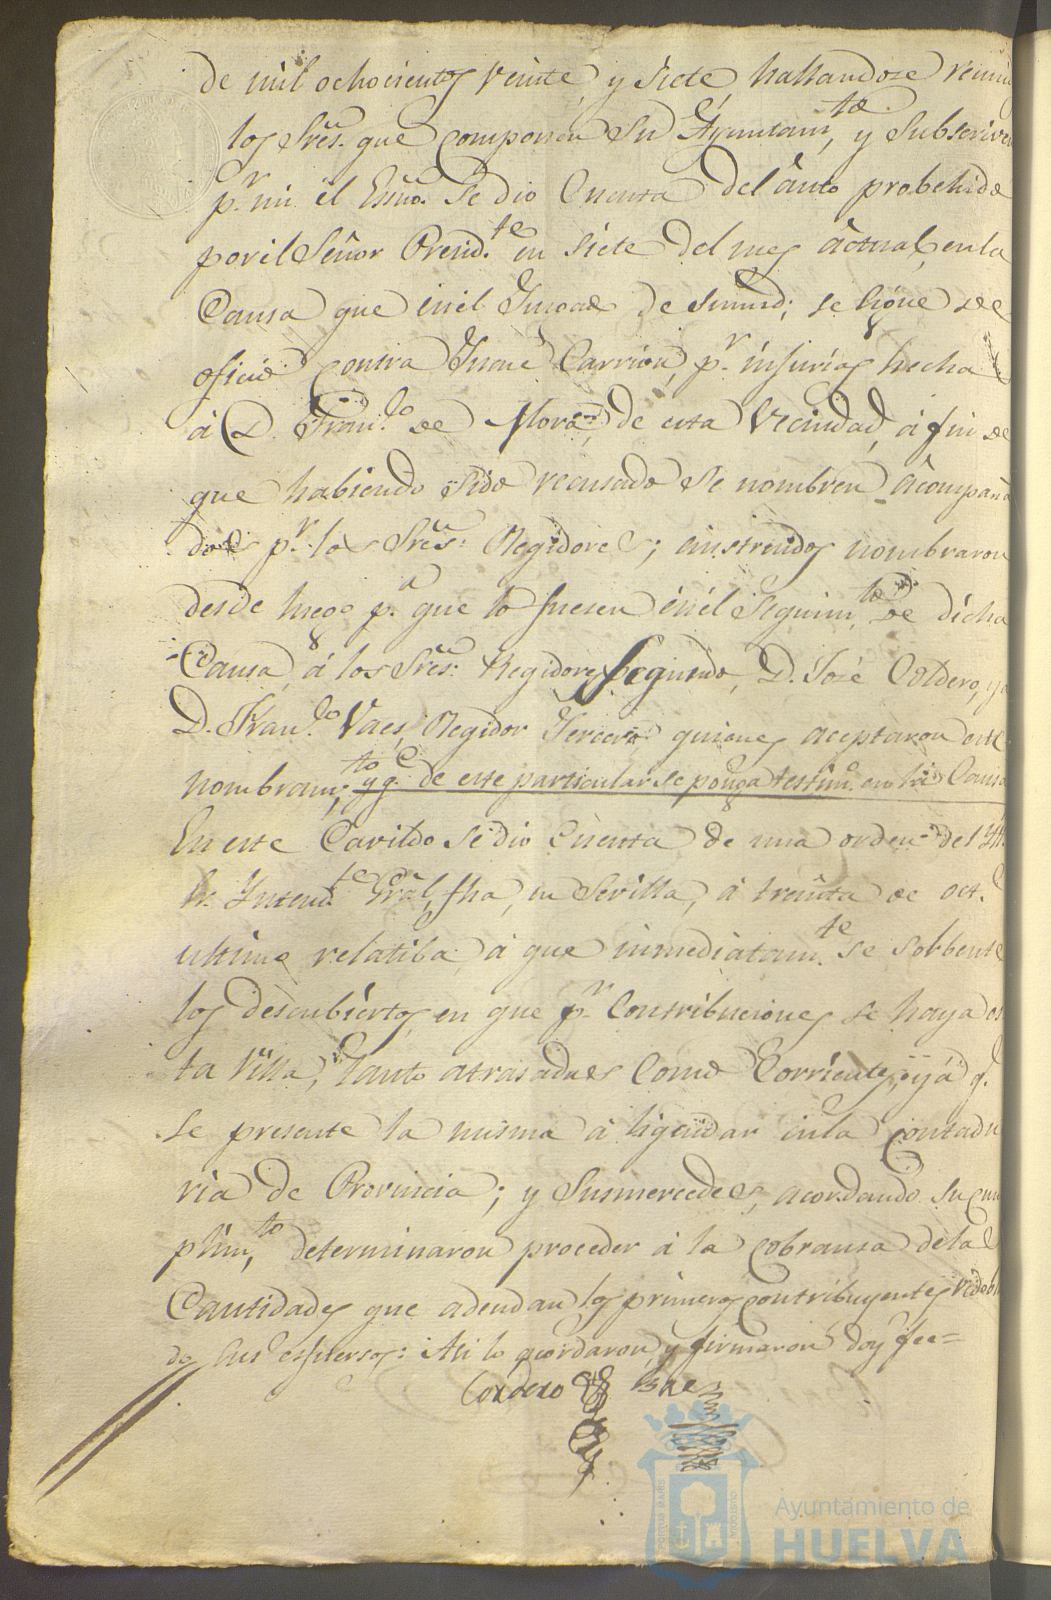 de mil ochocientos veinte y siete, hallandose reuni
los Sres. que componen su Ayuntamto, y subscriven
pr. mi el Essno. Se dio Cuenta del auto probehido
por el Señor Presidte. en siete del mes actual, en la
Causa que en el Juzgdo de Su mrd; se sigue de
oficio contra José Carrion, pr. injurias hecha
á D. Franco. de Mora, de esta Vecindad, á fin de
que habiendo sido recusado se nombren acompaña
dos pr. los Sres. Regidores; é instruidos nombraron
desde luego pa. que lo fuesen en el Seguimto de dicha
Causa, á los Sres. Regidores Segundo, D. José Cordero, y á
D. Franco. Vaes, Regidor Tercero quienes aceptaron este
nombramto; y qe. de este particular se ponga testimo. en la Causa
En este Cavildo se dio Cuenta de una orden del Yl.
Sr. Yntendte. Gral, fha, en Sevilla, á treinta de Oct.e
ultimo relatiba, á que inmediatamte. se solbente
los descubiertos en que pr. Contribuciones se haya es
ta Villa, tanto atrasadas como Corriente, y á q.
se presente la misma á liquidar en la Contadu
ria de Provincia; y Susmercedes, acordando su cum
plimto, determinaron proceder á la cobransa de la
Cantidades que adeudan los primeros Contribuyentes redobla
do sus esfuersos: Asi lo acordaron, y firmaron doy fee=
Cordero Baes
Ayuntamiento de
HUELVA